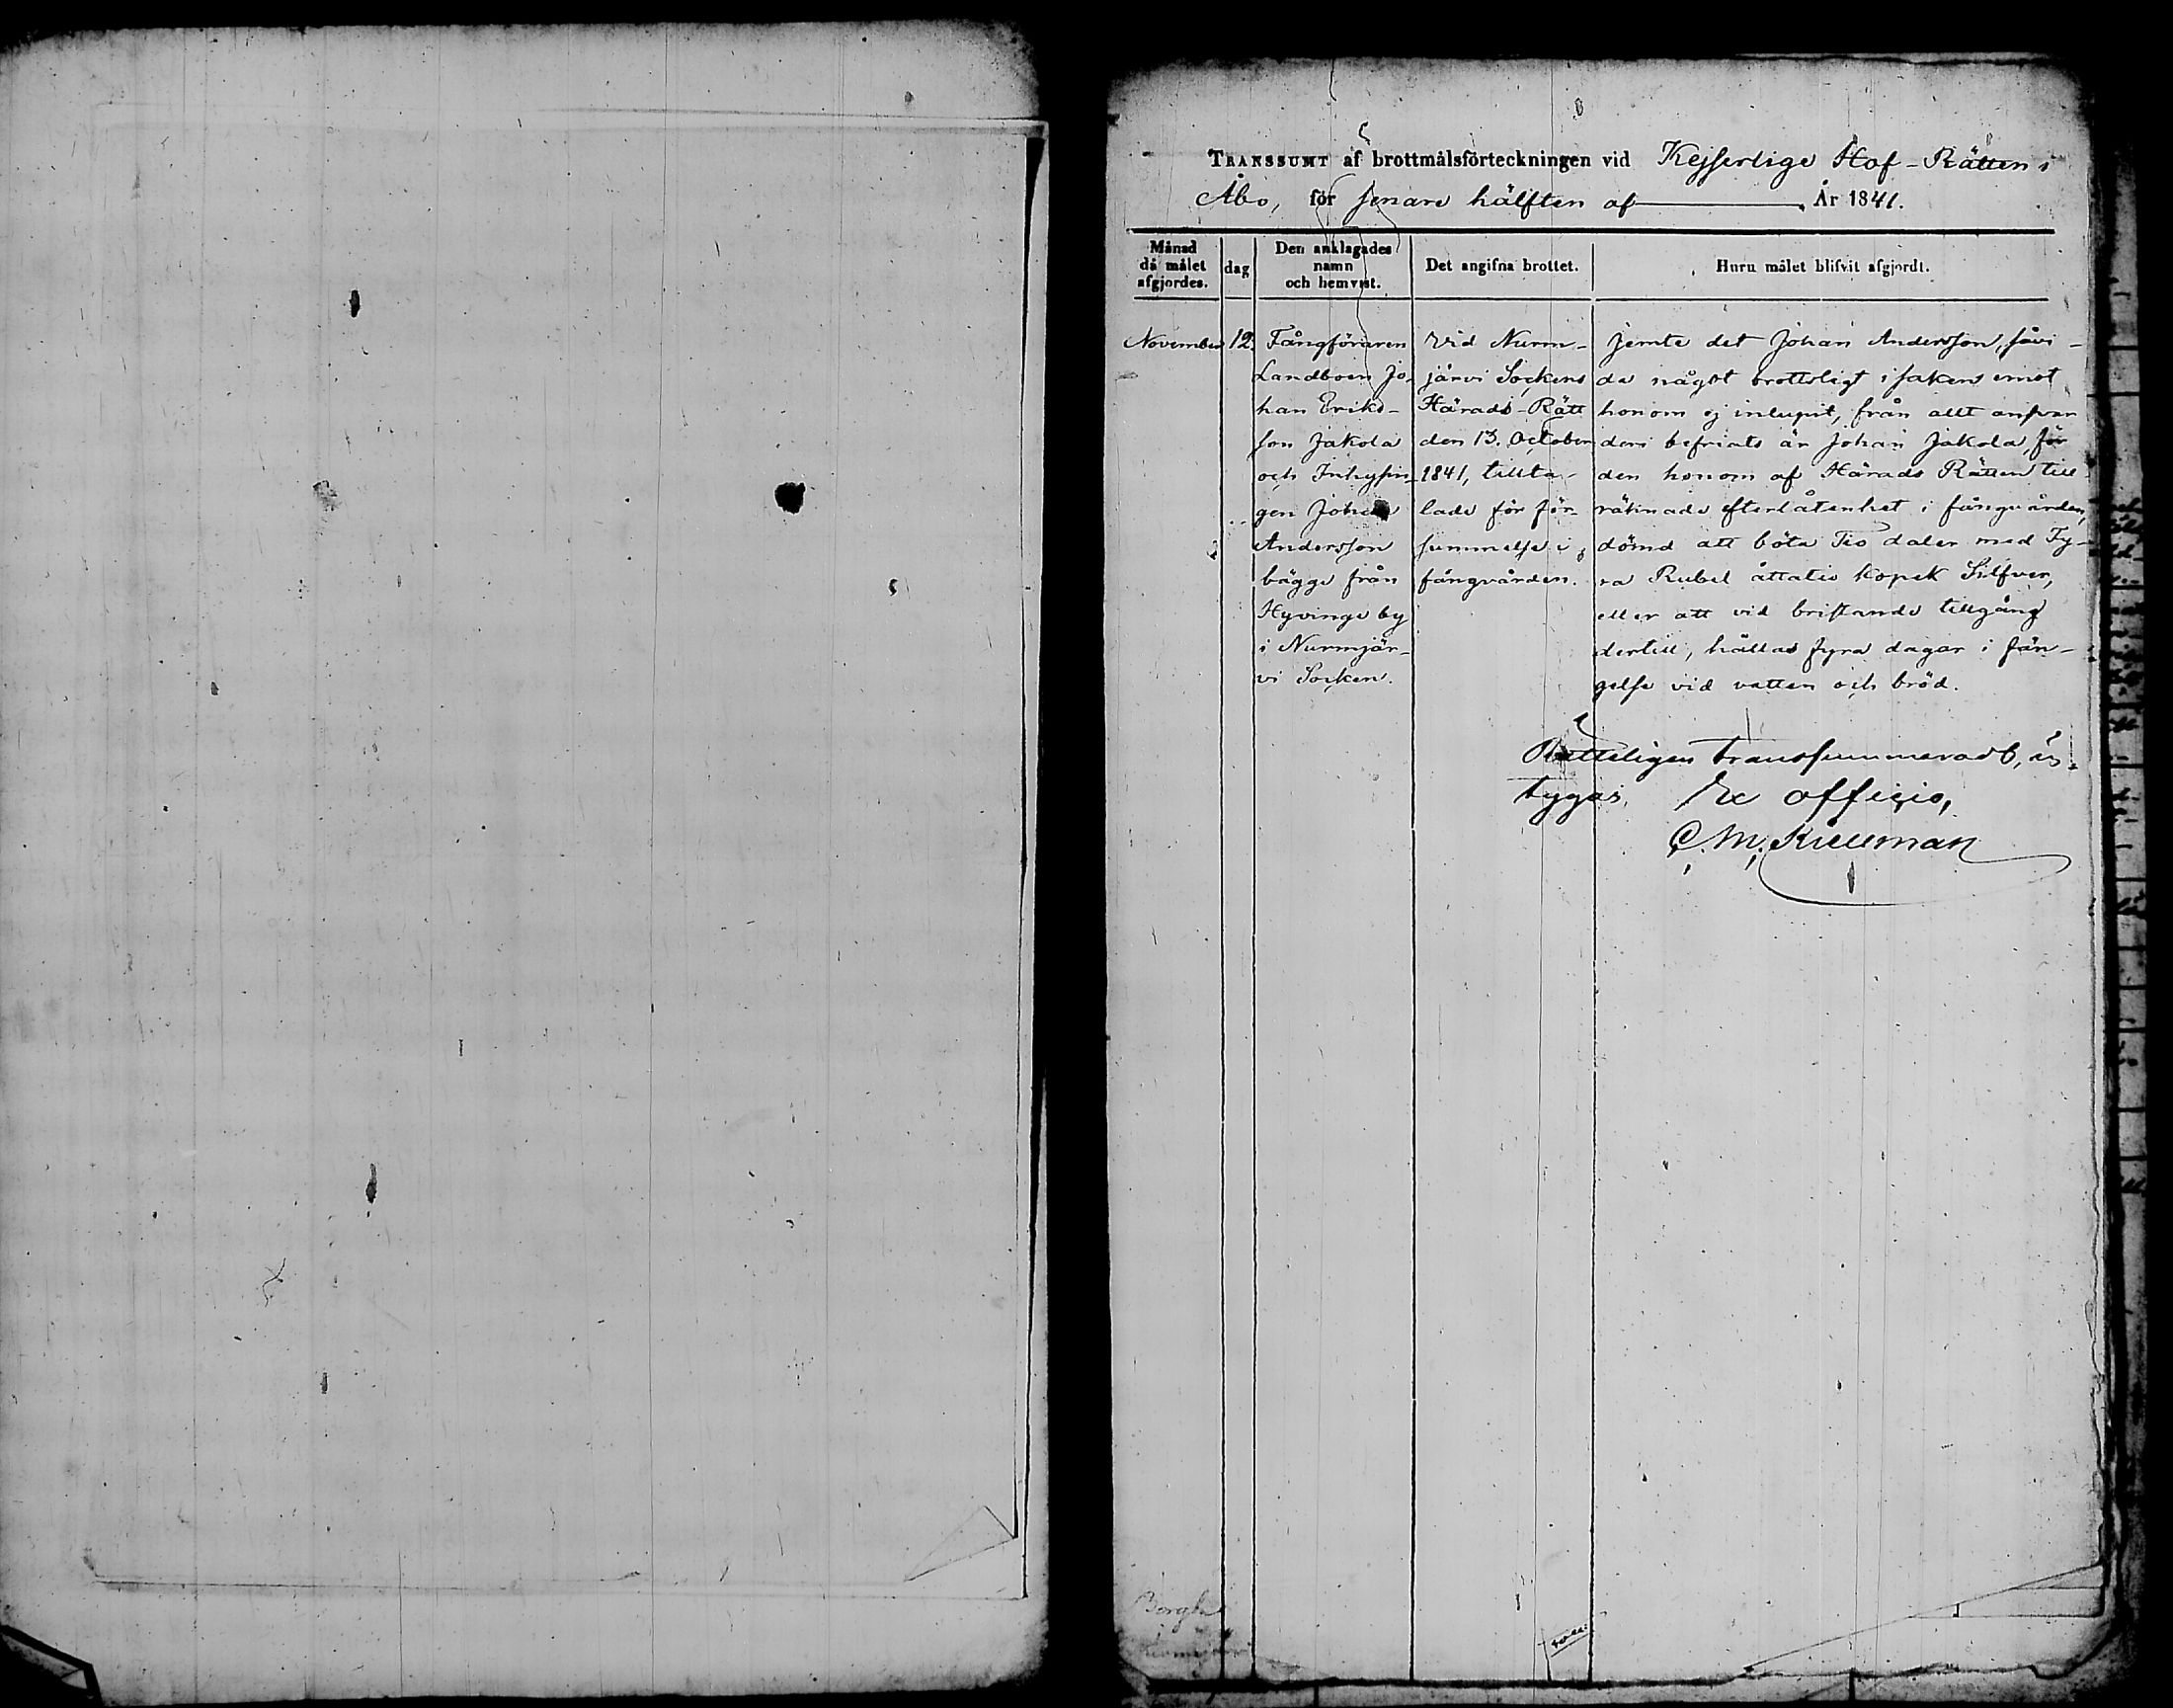 TRANSSUMT af brottmålsförteckningen vid Kejserlige Hof-Rätten i
Åbo, för senare hälften af År 1841.
Månad
då målet
afgjordes.
dag
Den anklagades
namn
och hemvist.
Det angifna brottet.
Huru målet blifvit afgjordt.
November
12.
Fångföraren
Landboen Jo-
han Eriks-
son Jakola
och Inhysin-
gen Johan
Andersson
bägge från
Hyvinge by
i Nurmjär-
vi Socken.
Vid Nurm-
järvi Sockens
Härads-Rätt
den 13. October
1841, tillta-
lade för för-
summelse i
fångvården.
Jemte det Johan Andersson, såvi-
da något brottsligt i saken emot
honom ej inlupit, från allt ansvar
deri befriats är Johan Jakola, för
den honom af Härads Rätten till-
räknade efterlåtenhet i fångvården,
dömd att böta Tio daler med Fy-
ra Rubel åttatio kopek Silfver,
eller att vid bristande tillgång
dertill, hållas fyra dagar i fän-
gelse vid vatten och bröd.
Rätteligen transsummeradt, be-
tygas, Ex officio,
C. M. Kreuman
Borgå